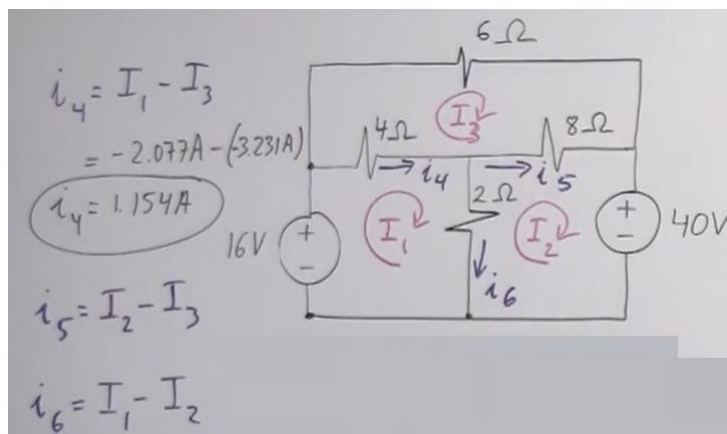 i₄ = I₁ - I₃
= -2.077A - (-3.231A)
i₄ = 1.154A
i₅ = I₂ - I₃
i₆ = I₁ - I₂
6Ω
I₃
4Ω
8Ω
i₄
i₅
2Ω
16V
+
-
I₁
I₂
+
-
40V
i₆